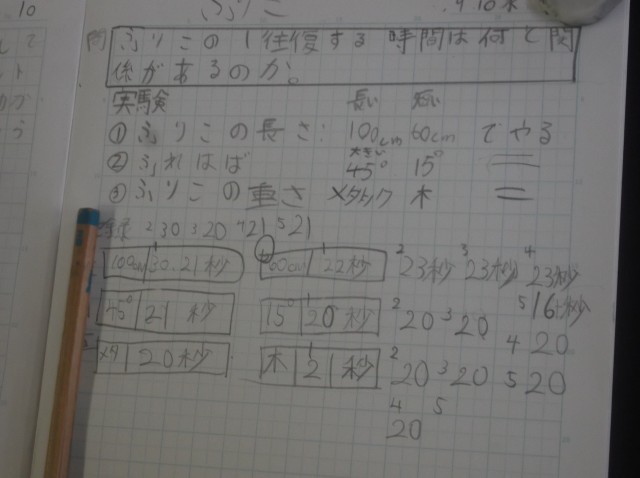 10
ふりこ
問 ふりこの1往復する時間は何と関
係があるのか。
実験 長い 短い
①ふりこの長さ: 100cm 60cm でやる
大きい
②ふれはば 45° 15°
③ふりこの重さ メタリック 木
2 30 3 20 4 21 5 21
100cm 1 30.21秒 60cm 1 22秒 2 23秒 3 23秒 4 23秒
5 16秒
45° 21 秒 15° 1 20秒 2 20 3 20 4 20
メタ 20秒 木 1 21秒 2 20 3 20 5 20
4 5
20